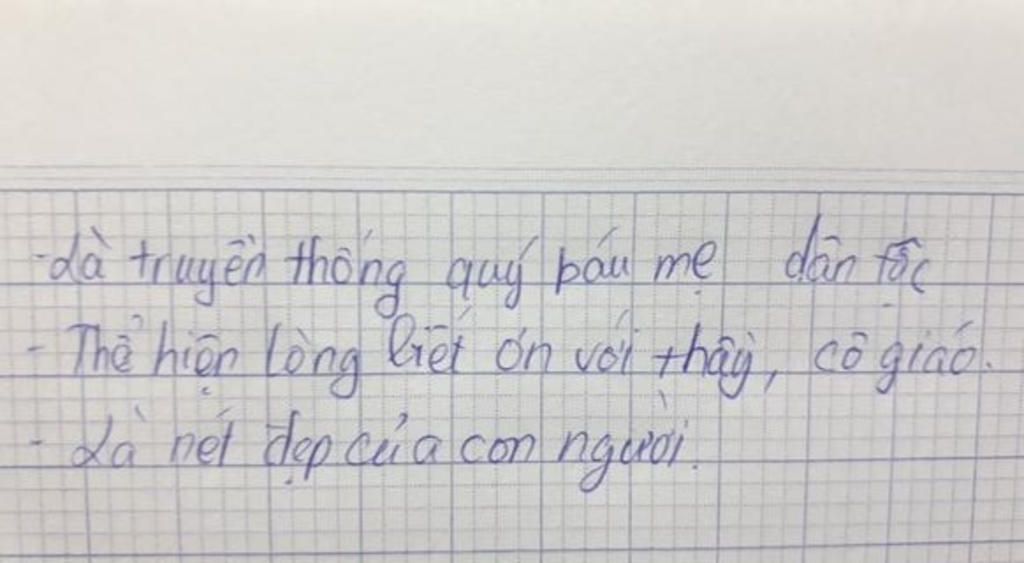 - Là truyền thống quý báu mẹ dân tộc
- Thể hiện lòng biết ơn với thầy, cô giáo.
- Là nét đẹp của con người.